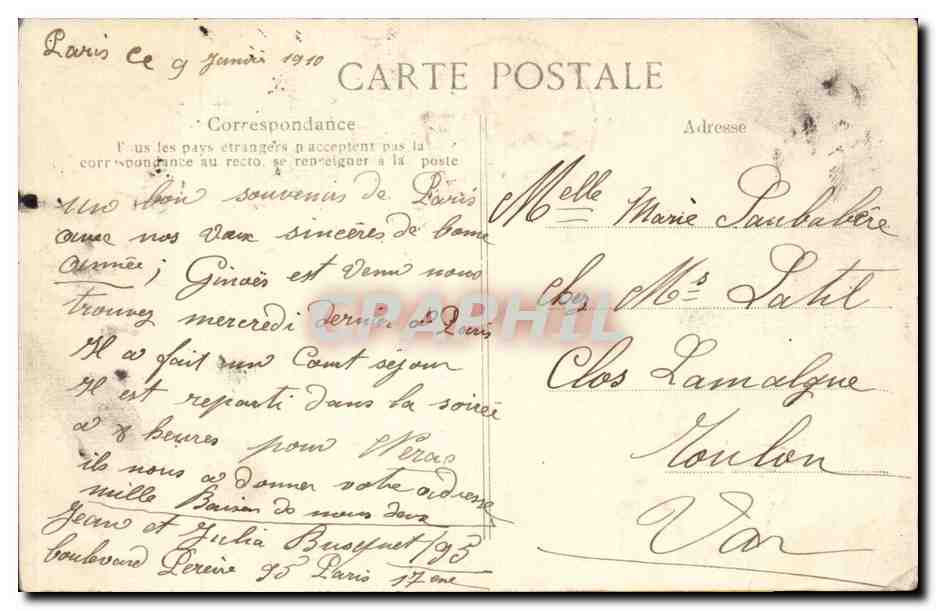 Paris Ce 9 Janvié 1910
CARTE POSTALE
Correspondance
Tous les pays étrangers n'acceptent pas la
correspondance au recto, se renseigner à la poste
un bon souvenir de Paris
avec nos vœux sincéres de bonne
année; est venu nous
trouvez mercredi dernier a Paris
Il a fait un Court séjour
Il est reparti dans la soirée
a 8 heures pour
ils nous a donner votre adresse
mille Baisers de nous deux
Jean et Julia Busquet / 95
boulevard Pereire 95 Paris 17 eme
Adresse
Melle Marie
chez Mr Latil
Clos Lamalgue
Toulon
Var
CPAPHIL